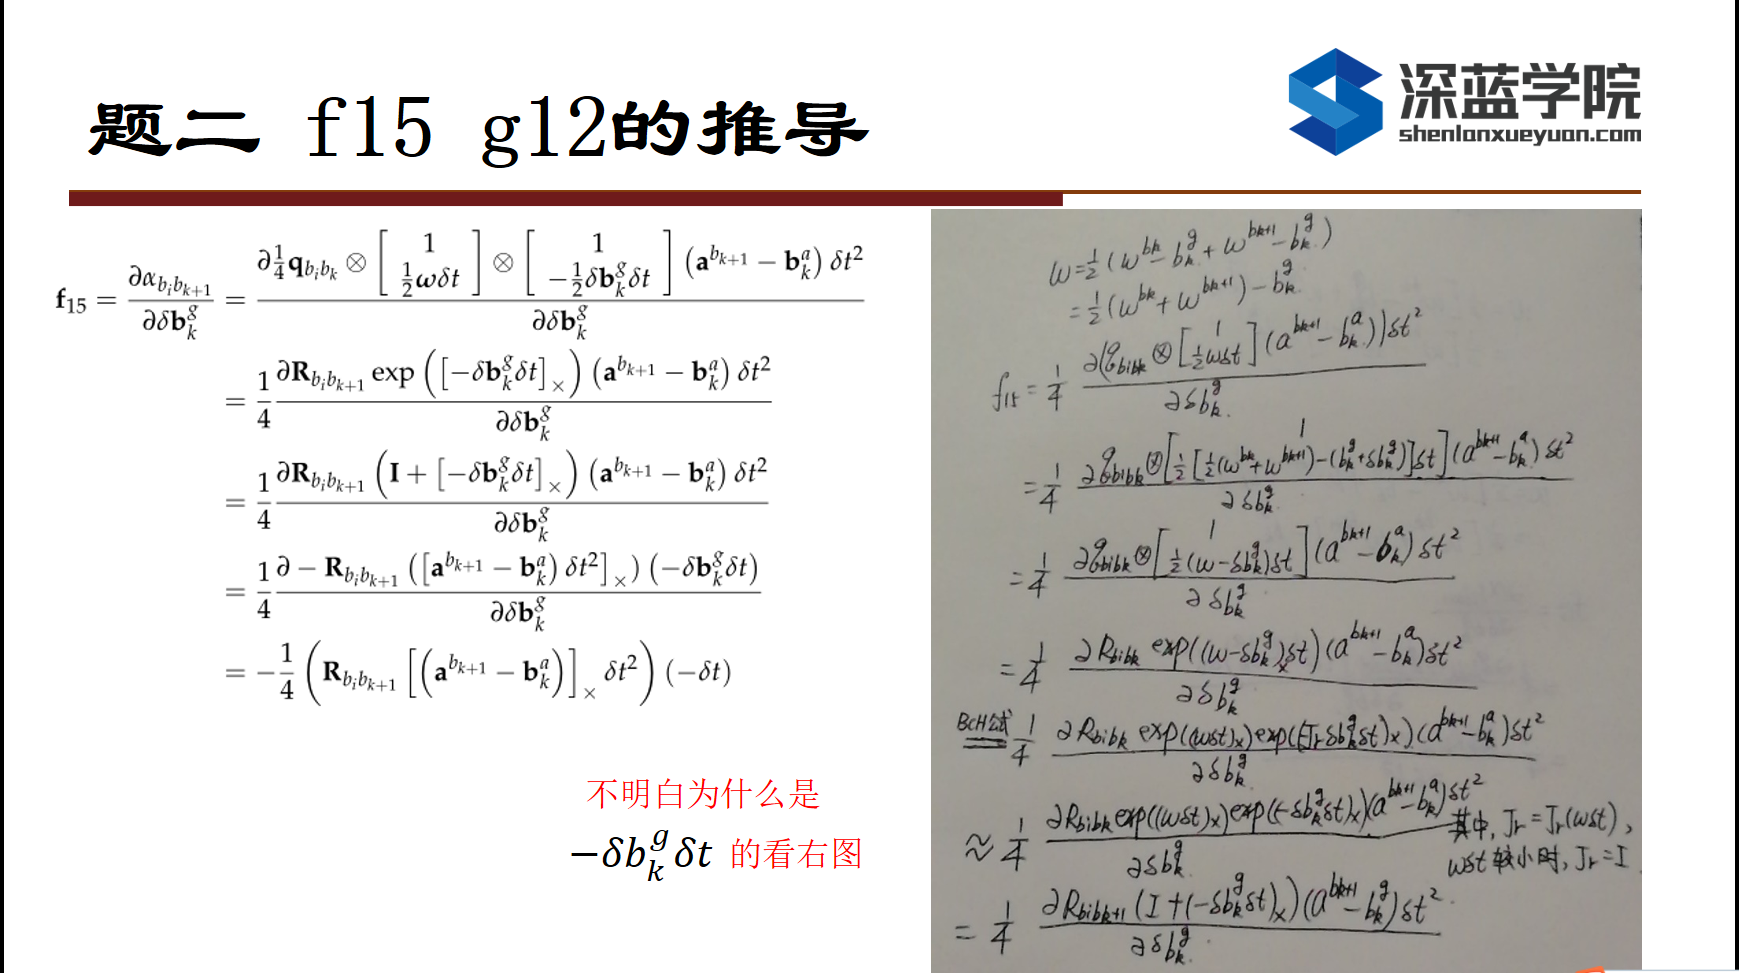 题二 f15 g12的推导
深蓝学院
shenlanxueyuan.com
f₁₅ = ∂α_{b_i b_{k+1}} / ∂δb_k^g = ∂ 1/4 q_{b_i b_k} ⊗ [1; 1/2 ωδt] ⊗ [1; −1/2 δb_k^g δt] (a^{b_{k+1}} − b_k^a) δt² / ∂δb_k^g
= 1/4 ∂R_{b_i b_{k+1}} exp([−δb_k^g δt]_×) (a^{b_{k+1}} − b_k^a) δt² / ∂δb_k^g
= 1/4 ∂R_{b_i b_{k+1}} (I + [−δb_k^g δt]_×) (a^{b_{k+1}} − b_k^a) δt² / ∂δb_k^g
= 1/4 ∂ − R_{b_i b_{k+1}} ([a^{b_{k+1}} − b_k^a) δt²]_×) (−δb_k^g δt) / ∂δb_k^g
= −1/4 (R_{b_i b_{k+1}} [(a^{b_{k+1}} − b_k^a)]_× δt²) (−δt)
不明白为什么是
−δb_k^g δt 的看右图
ω = 1/2 (ω^{bk} − b_k^g + ω^{bk+1} − b_k^g)
= 1/2 (ω^{bk} + ω^{bk+1}) − b_k^g
f₁₅ = 1/4 ∂(q_{bibk} ⊗ [1; 1/2 ωδt] (a^{bk+1} − b_k^a)) δt² / ∂δb_k^g
= 1/4 ∂q_{bibk} ⊗ [1; 1/2 [1/2 (ω^{bk} + ω^{bk+1}) − (b_k^g + δb_k^g)] δt] (a^{bk+1} − b_k^a) δt² / ∂δb_k^g
= 1/4 ∂q_{bibk} ⊗ [1; 1/2 (ω − δb_k^g) δt] (a^{bk+1} − b_k^a) δt² / ∂δb_k^g
= 1/4 ∂R_{bibk} exp((ω − δb_k^g)_× δt) (a^{bk+1} − b_k^a) δt² / ∂δb_k^g
BCH公式 = 1/4 ∂R_{bibk} exp((ωδt)_×) exp((−J_r δb_k^g δt)_×) (a^{bk+1} − b_k^a) δt² / ∂δb_k^g
≈ 1/4 ∂R_{bibk} exp((ωδt)_×) exp((−δb_k^g δt)_×) (a^{bk+1} − b_k^a) δt² / ∂δb_k^g
其中, J_r = J_r(ωδt),
ωδt 较小时, J_r = I
= 1/4 ∂R_{bibk+1} (I + (−δb_k^g δt)_×) (a^{bk+1} − b_k^g) δt² / ∂δb_k^g